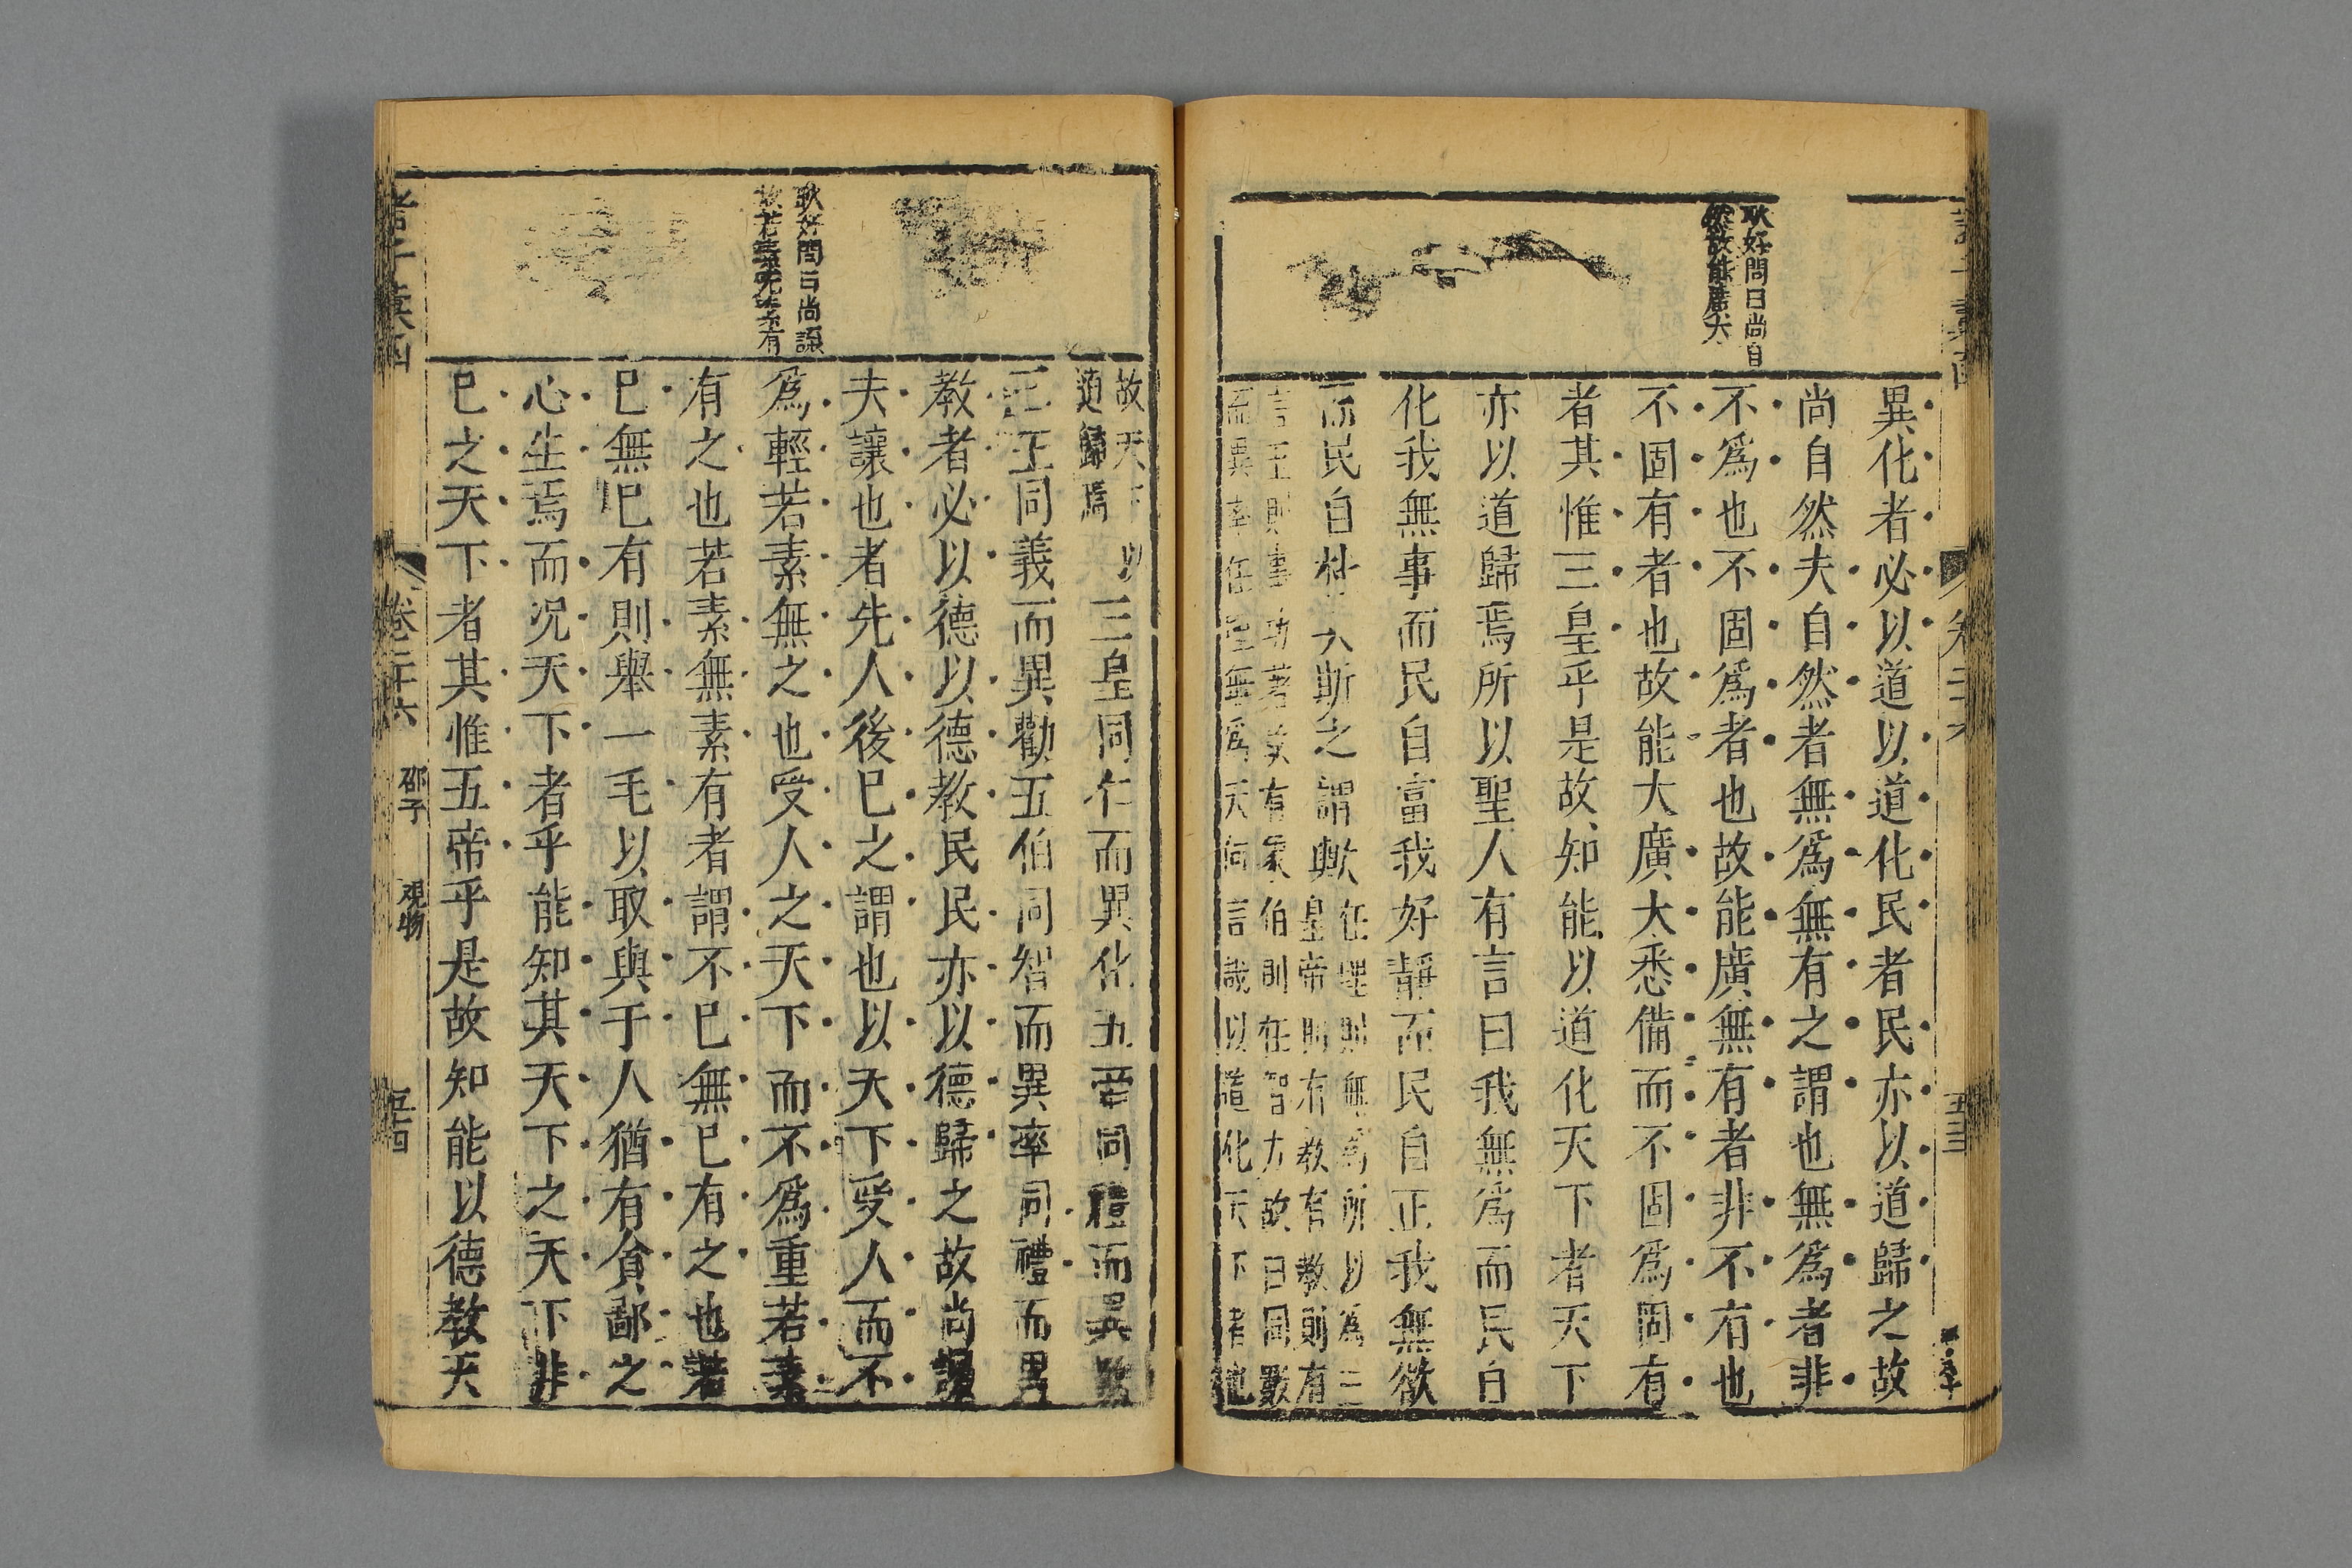 耿好問曰尚自
然故能廣大
異化者必以道以道化民者民亦以道歸之故
尚自然夫自然者無為無有之謂也無為者非
不為也不固為者也故能廣無有者非不有也
不固有者也故能大廣大悉備而不固為固有
者其惟三皇乎是故知能以道化天下者天下
亦以道歸焉所以聖人有言曰我無為而民自
化我無事而民自富我好靜而民自正我無欲
而民自朴其斯之謂歟
任理則無為所以為三
皇帝則有教有教則有
言王則事功著故有象伯則任智力故曰同數
而異率任理無為天何言哉以道化天下者也
卷二十六
五十三
耿好問曰尚讓
故若素无素有
故天下以
道歸焉
三皇同仁而異化五帝同禮而異教
三王同義而異勸五伯同智而異率同禮而異
教者必以德以德教民民亦以德歸之故尚讓
夫讓也者先人後已之謂也以天下受人而不
為輕若素無之也受人之天下而不為重若素
有之也若素無素有者謂不已無已有之也若
已無已有則舉一毛以取與于人猶有貪鄙之
心生焉而況天下者乎能知其天下之天下非
已之天下者其惟五帝乎是故知能以德教天
卷二十六
邵子
觀物
五十四